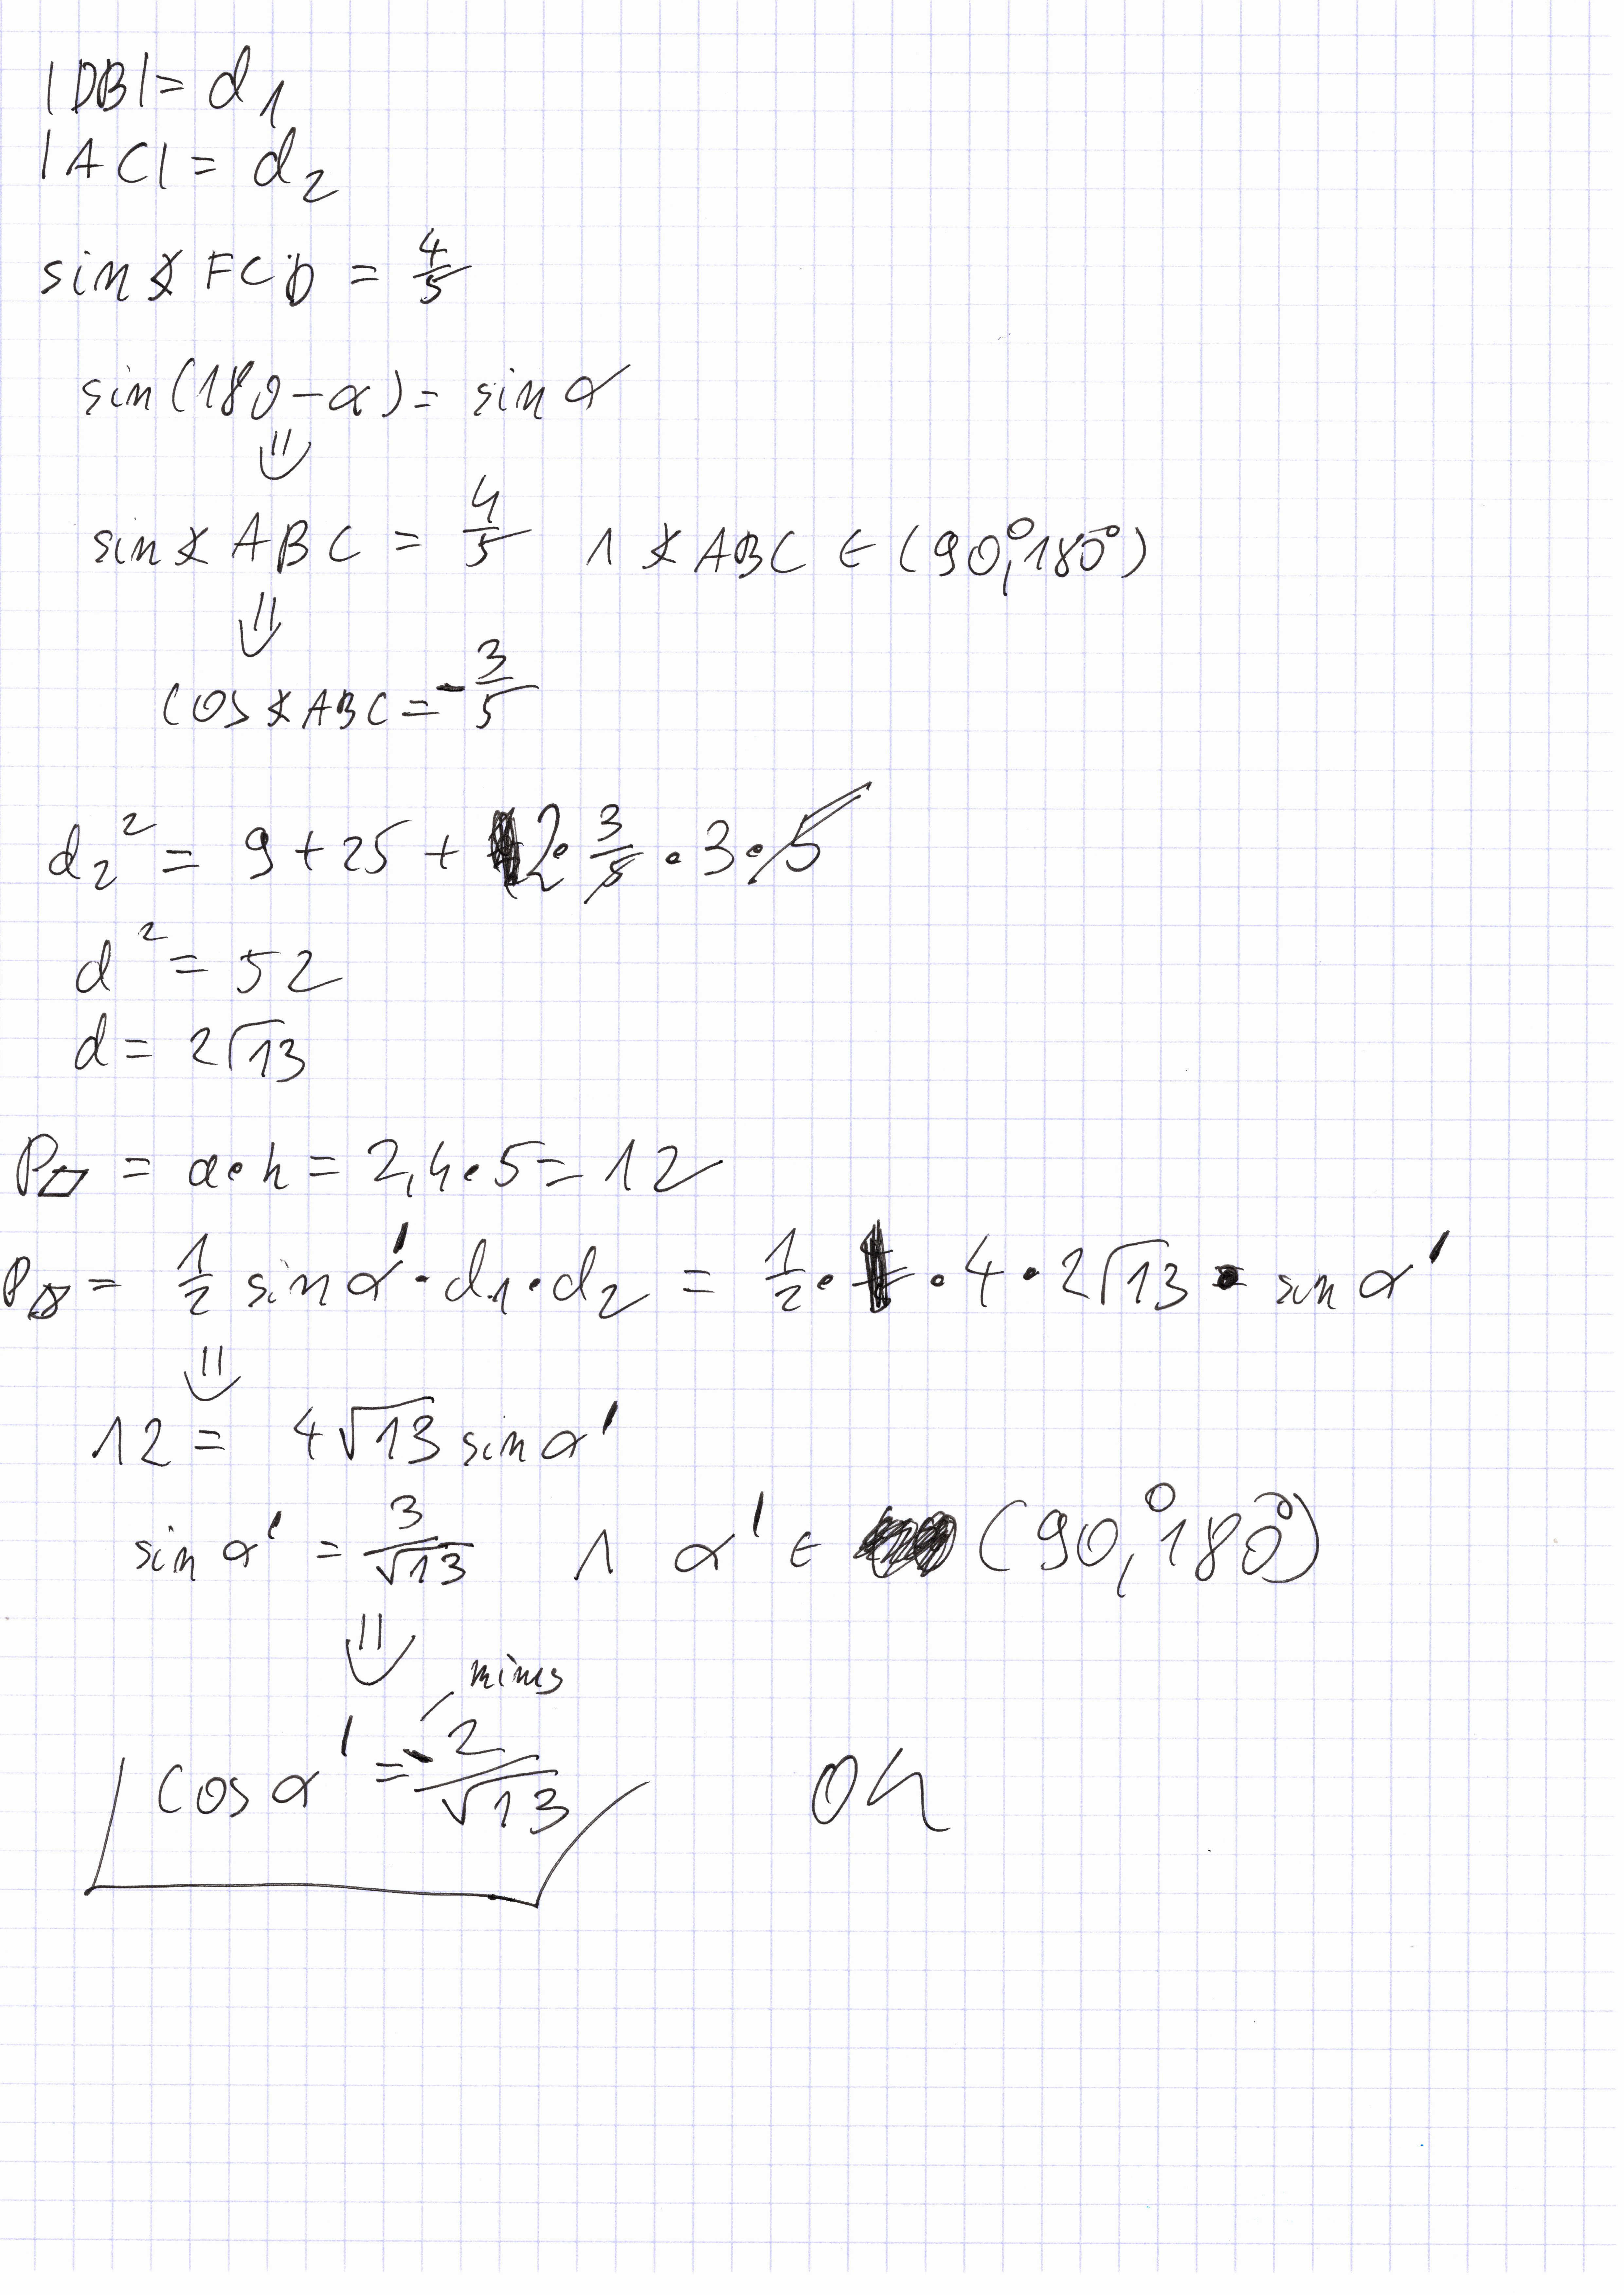 |DB| = d₁
|AC| = d₂
sin∡ FCD = 4/5
sin(180-α) = sin α
⇓
sin∡ ABC = 4/5 ∧ ∡ABC ∈ (90°,180°)
⇓
cos∡ABC = -3/5
d₂² = 9 + 25 + 2 · 3/5 · 3 · 5
d² = 52
d = 2√13
P▱ = a·h = 2,4·5 = 12
P▱ = 1/2 sin α' · d₁ · d₂ = 1/2 · 4 · 2√13 · sin α'
⇓
12 = 4√13 sin α'
sin α' = 3/√13 ∧ α' ∈ (90°,180°)
⇓
minus
cos α' = -2/√13